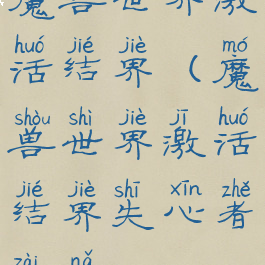 魔兽世界激
huó jié jiè mó
活结界(魔
shòu shì jiè jī huó
兽世界激活
jié jiè shī xīn zhě
结界失心者
zài nǎ